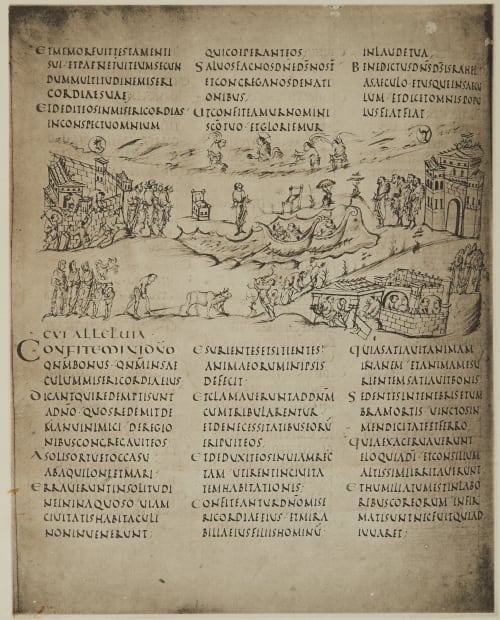 ETMEMORFUITTESTAMENTI
SUI · ETPAENITUITEUMSECUN
DUMMULTITUDINEMISERI
CORDIAESUAE;
ETDEDITEOSINMISERICORDIAS
INCONSPECTUOMNIUM
QUICOEPERANTEOS;
SALUOSFACNOSDNEDSNOST
ETCONGREGANOSDENATI
ONIBUS
UTCONFITEAMURNOMINI
SCOTUO · ETGLORIEMUR
INLAUDETUA;
BENEDICTUSDNSDSISRAHEL
ASAECULO · ETUSQUEINSAECU
LUM · ETDICETOMNISPOPU
LUSFIATFIAT;
CVI ALLELUIA
CONFITEMINIDNO
QNMBONUS · QNMINSAE
CULUMMISERICORDIAEIUS
DICANTQUIREDEMPTISUNT
ADNO · QUOSREDEMITDE
MANUINIMICI · DEREGIO
NIBUSCONGREGAUITEOS
ASOLISORTUETOCCASU
ABAQUILONEETMARI;
ERRAUERUNTINSOLITUDI
NEININAQUOSO · UIAM
CIUITATISHABITACULI
NONINUENERUNT;
ESURIENTESETSITIENTES·
ANIMAEORUMINIPSIS
DEFECIT·
ETCLAMAUERUNTADDNM
CUMTRIBULARENTUR·
ETDENECESSITATIBUSEORU
ERIPUITEOS·
ETDEDUXITEOSINUIAMREC
TAM · UTIRENTINCIUITA
TEMHABITATIONIS;
CONFITEANTURDNOMISE
RICORDIAEEIUS · ETMIRA
BILIAEIUSFILIISHOMINU·
QUIASATIAUITANIMAM
INANEM · ETANIMAMESU
RIENTEMSATIAUITBONIS·
SEDENTESINTENEBRISETUM
BRAMORTIS · UINCTOSIN
MENDICITATEETFERRO
QUIAEXACERUAUERUNT
ELOQUIADI · ETCONSILIUM
ALTISSIMIIRRITAUERUNT
ETHUMILIATUMESTINLABO
RIBUSCOREORUM · INFIR
MATISUNTNECFUITQUIAD
IUUARET;